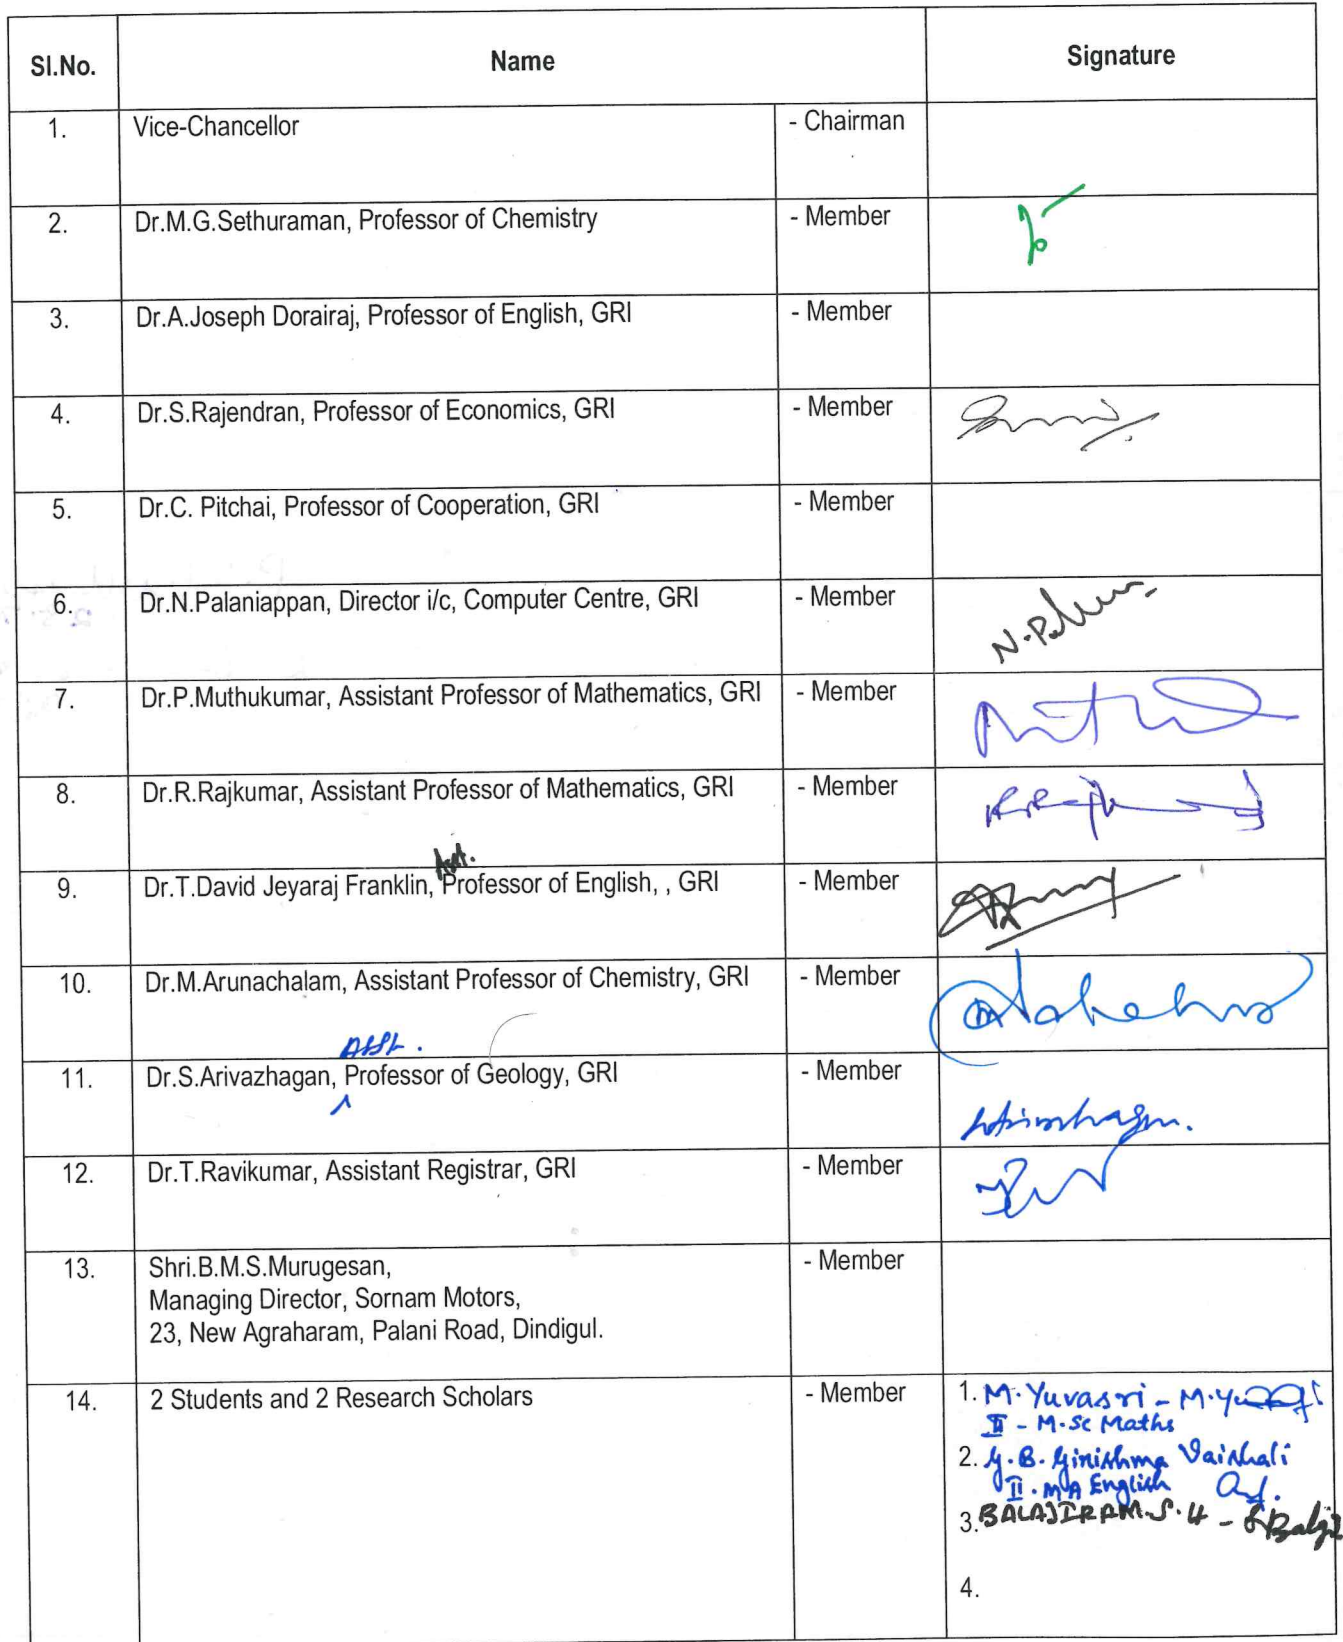 Sl.No. Name Signature
1. Vice-Chancellor - Chairman
2. Dr.M.G.Sethuraman, Professor of Chemistry - Member
3. Dr.A.Joseph Dorairaj, Professor of English, GRI - Member
4. Dr.S.Rajendran, Professor of Economics, GRI - Member
5. Dr.C. Pitchai, Professor of Cooperation, GRI - Member
6. Dr.N.Palaniappan, Director i/c, Computer Centre, GRI - Member
7. Dr.P.Muthukumar, Assistant Professor of Mathematics, GRI - Member
8. Dr.R.Rajkumar, Assistant Professor of Mathematics, GRI - Member
Asst.
9. Dr.T.David Jeyaraj Franklin, Professor of English, , GRI - Member
10. Dr.M.Arunachalam, Assistant Professor of Chemistry, GRI - Member
Asst.
11. Dr.S.Arivazhagan, Professor of Geology, GRI - Member
12. Dr.T.Ravikumar, Assistant Registrar, GRI - Member
13. Shri.B.M.S.Murugesan, - Member
Managing Director, Sornam Motors,
23, New Agraharam, Palani Road, Dindigul.
14. 2 Students and 2 Research Scholars - Member
1. M. Yuvasri -
II - M.Sc Maths
2. G.B. Ginishma Vaishali
II. MA English
3. BALAJIRAM.S.U -
4.